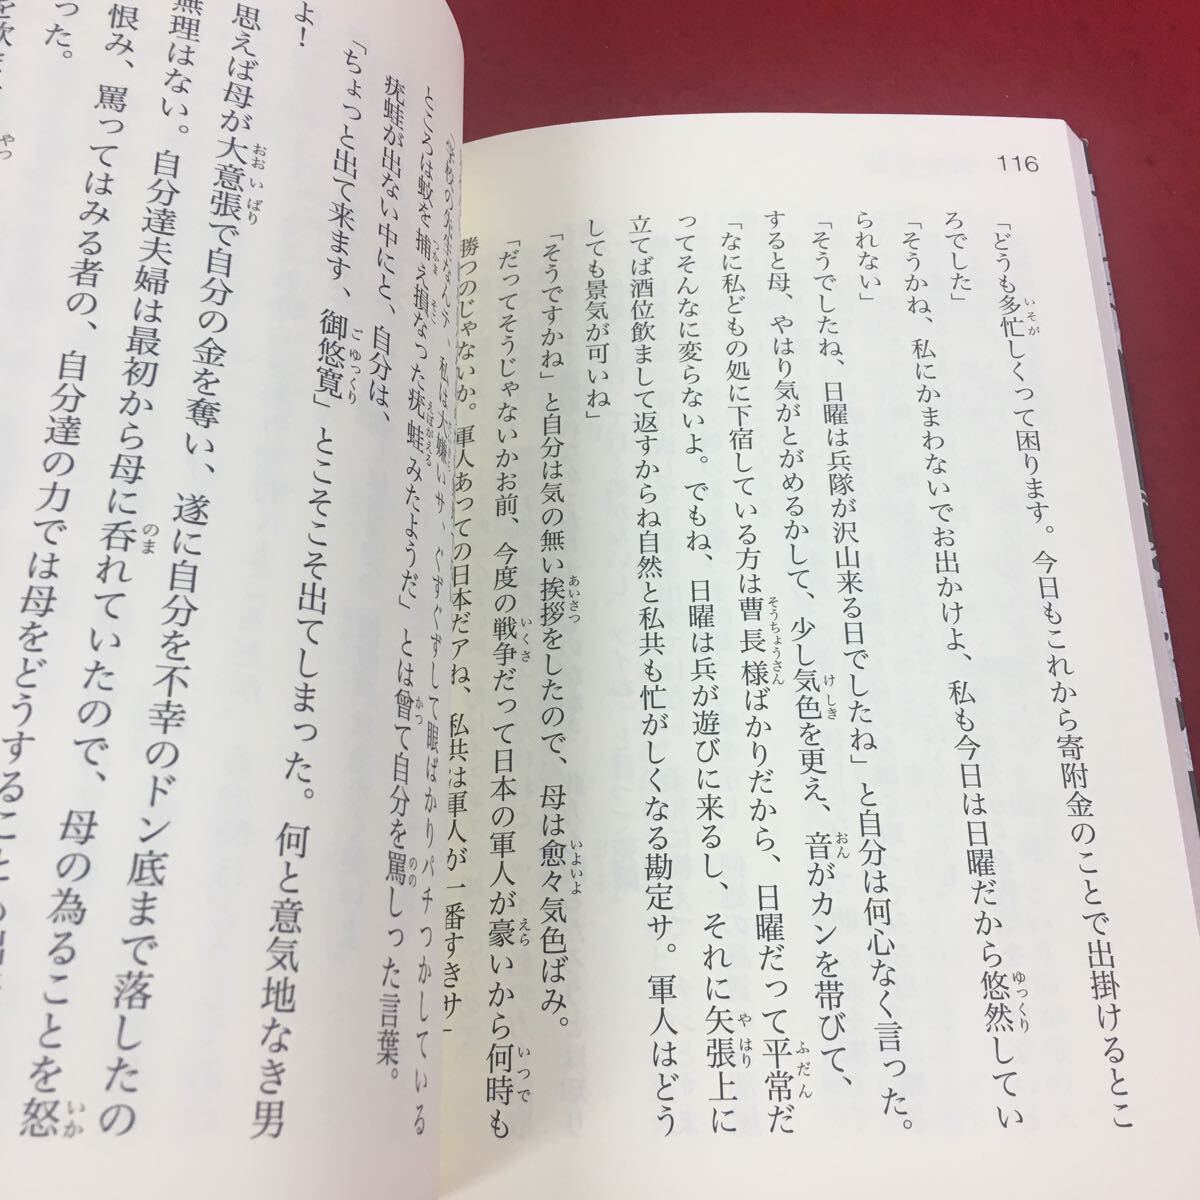 116
「どうも多忙しくって困ります。今日もこれから寄附金のことで出掛けるとこ
ろでした」
「そうかね、私にかまわないでお出かけよ、私も今日は日曜だから悠然してい
られない」
「そうでしたね、日曜は兵隊が沢山来る日でしたね」と自分は何心なく言った。
すると母、やはり気がとがめるかして、少し気色を更え、音がカンを帯びて、
「なに私どもの処に下宿している方は曹長様ばかりだから、日曜だって平常だ
ってそんなに変らないよ。でもね、日曜は兵が遊びに来るし、それに矢張上に
立てば酒位飲まして返すからね自然と私共も忙がしくなる勘定サ。軍人はどう
しても景気が可いね」
「そうですかね」と自分は気の無い挨拶をしたので、母は愈々気色ばみ。
「だってそうじゃないかお前、今度の戦争だって日本の軍人が豪いから何時も
勝つのじゃないか。軍人あっての日本だアね、私共は軍人が一番すきサ」
私は大嫌いサ、ぐずぐずして眼ばかりパチつかしている
ところは蚊を捕え損なった疣蛙みたようだ」とは曾て自分を罵しった言葉。
疣蛙が出ない中にと、自分は、
「ちょっと出て来ます、御悠寛」とこそこそ出てしまった。何と意気地なき男
よ！
思えば母が大意張で自分の金を奪い、遂に自分を不幸のドン底まで落したの
無理はない。自分達夫婦は最初から母に呑れていたので、母の為ることを怒
恨み、罵ってはみる者の、自分達の力では母をどうすること
った。